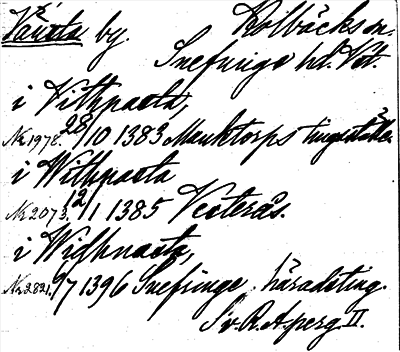 Västa by. Kolbäcks sn.
Snefringe hd. Vstm.
i Vithpasta,
Nr 1978. 28/10 1383 Munktorps tingställe
i Withpasta
Nr 2073. 2/1 1385 Vesterås.
i Widhnasta,
Nr 2821. 9/7 1396 Snefringe häradsting.
Sv. R. A. perg. II.